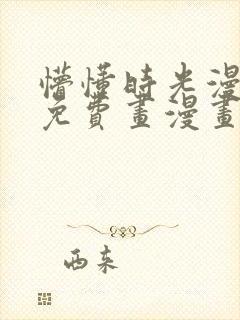 懵懂時光漫
免費畫漫畫
西东